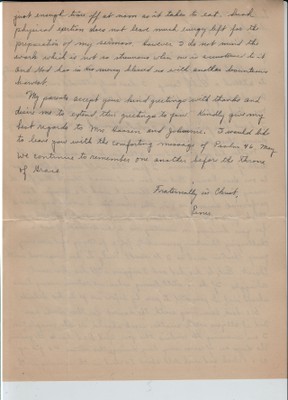 just enough time off at noon as it takes to eat. Such
physical exertion does not leave much energy left for the
preparation of my sermons. However I do not mind the
work which is not so strenuous when one is accustomed to it
and God has in His mercy blessed us with another bounteous
harvest.
My parents accept your kind greetings with thanks and
desire me to extend their greetings to you. Kindly give my
best regards to Mrs. and Johannie. I would like
to leave you with the comforting message of Psalm 46. May
we continue to remember one another before the Throne
of Grace.
Fraternally in Christ,